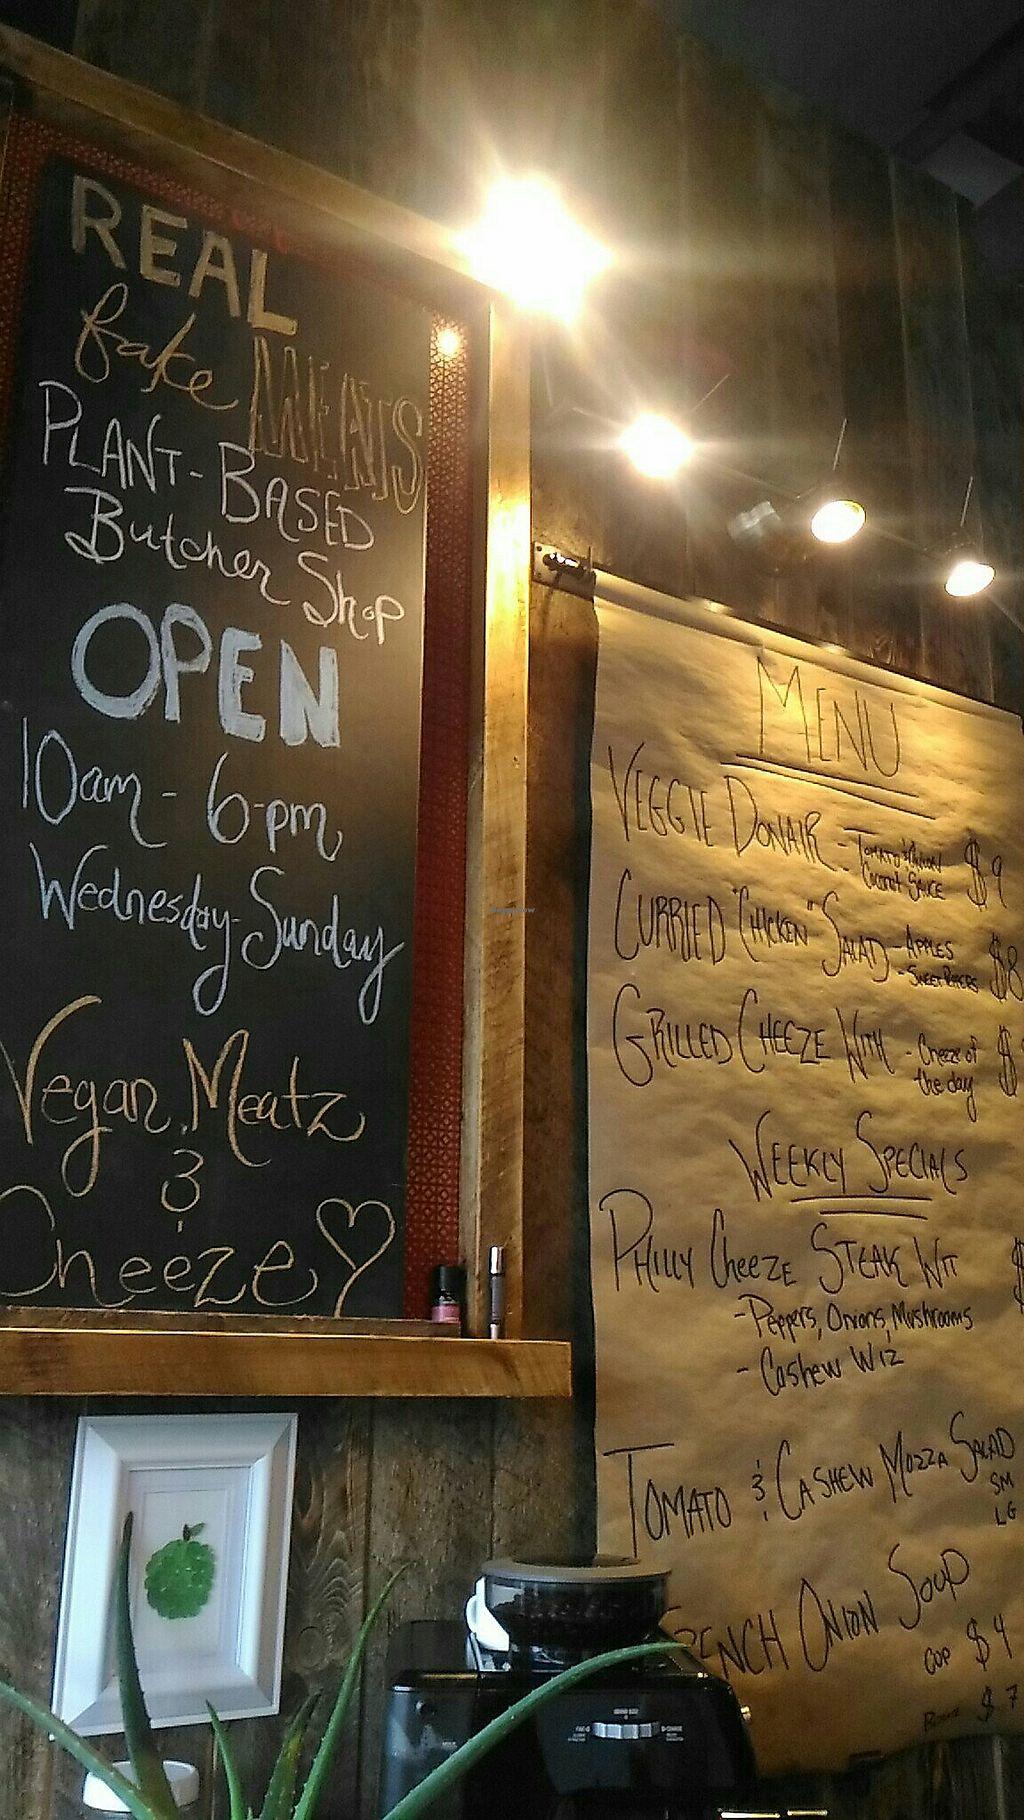 REAL
fake MEATS
PLANT-BASED
Butcher Shop
OPEN
10am - 6-pm
Wednesday-Sunday
Vegan Meatz
&
Cheeze
MENU
VEGGIE DONAIR - TOMATO & ONION $9
- COCONUT SAUCE
CURRIED "CHICKEN" SALAD - APPLES $8
- SWEET PEPPERS
GRILLED CHEEZE WITH - Cheeze of $
the day
WEEKLY SPECIALS
PHILLY CHEEZE STEAK WIT $
- Peppers, Onions, Mushrooms
- Cashew Wiz
TOMATO & CASHEW MOZZA SALAD
SM
LG
FRENCH ONION SOUP
CUP $4
$7